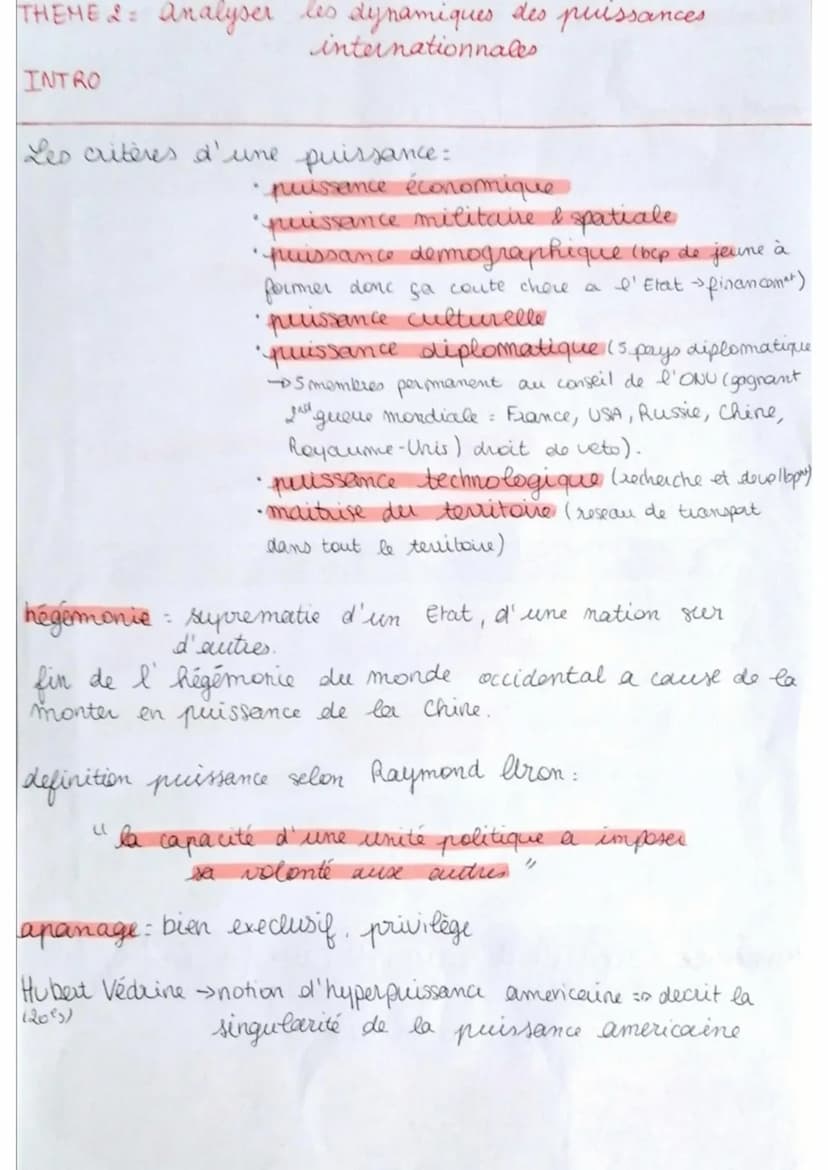 THEME 2 : Analyser les dynamiques des puissances
internationnales
INTRO
Les critères d'une puissance :
• puissance économique
• puissance militaire & spatiale
• puissance demographique (bcp de jeune à
former donc ça coute chere a l'Etat → financemet)
• puissance culturelle
• puissance diplomatique (5 pays diplomatique
→ 5 membres permanent au conseil de l'ONU (gagnant
2nd guerre mondiale : France, USA, Russie, Chine,
Royaume-Unis) droit de veto).
• puissance technologique (recherche et
• maitrise du territoire (reseau de transport
dans tout le territoire)
hégémonie : suprematie d'un Etat, d'une nation sur
d'autres.
fin de l'hégémonie du monde occidental a cause de la
monter en puissance de la Chine.
definition puissance selon Raymond Aron :
" la capacité d'une unité politique a imposer
sa volonté aux autres "
apanage : bien execlusif, privilège
Hubert Védrine → notion d'hyperpuissance americaine => decrit la
(20es)
singularité de la puissance americaine